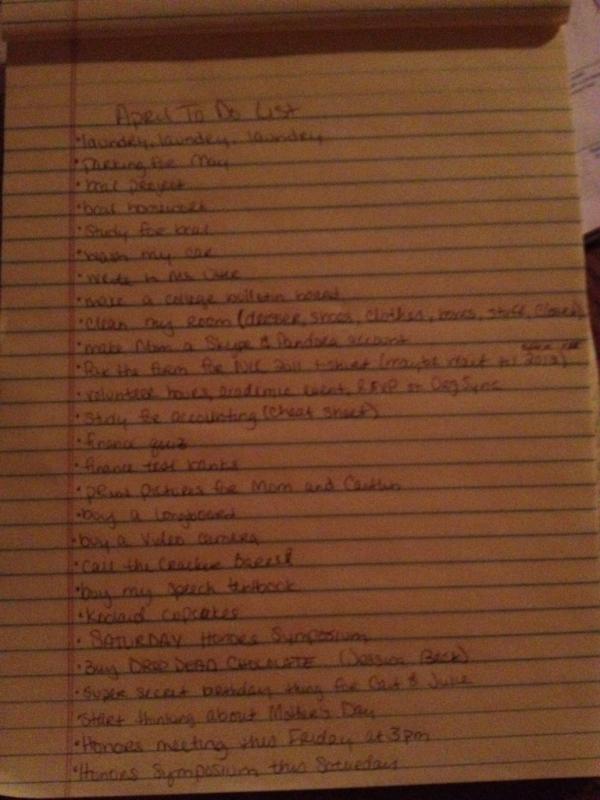 April To Do List
•laundry, laundry, laundry
•parking for May
•bcal project
•bcal homework
•Study for bcal
•wash my car
•write to Ms.
•make a college bulletin board
•Clean my room (dresser, shoes, clothes, boxes, stuff, closet)
•make Mom a Skype & Pandora account
•for the form for 2011 t-shirt (maybe wait til 2012)
•volunteer hours, academic event, RSVP on OrgSync
•Study for accounting (cheat sheet)
•finance quiz
•finance test banks
•print pictures for Mom and Caitlin
•buy a longboard
•buy a video camera
•Call the Cracker Barrel
•buy my speech textbook
•Koolaid cupcakes
•SATURDAY Honors Symposium
•Buy DROP DEAD CHOCOLATE (Jessica Beck)
•Super secret birthday thing for Cait & Julie
•Start thinking about Mother's Day
•Honors meeting this Friday at 3pm
•Honors Symposium this Saturday